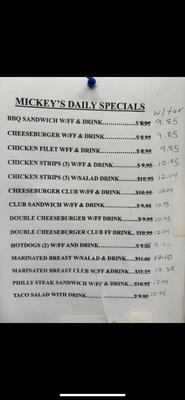 MICKEY'S DAILY SPECIALS
w/tax
BBQ SANDWICH W/FF & DRINK..................$ 8.95 9.85
CHEESEBURGER W/FF & DRINK................$ 8.95 9.85
CHICKEN FILET WFF & DRINK..................$ 8.95 9.85
CHICKEN STRIPS (3) W/FF & DRINK............$ 9.95 10.95
CHICKEN STRIPS (3) W/SALAD DRINK.........$10.95 12.04
CHEESEBURGER CLUB W/FF & DRINK.......$10.95 12.04
CLUB SANDWICH W/FF & DRINK................$ 9.95 10.95
DOUBLE CHEESEBURGER W/FF DRINK........$ 9.95 10.95
DOUBLE CHEESEBURGER CLUB FF DRINK...$10.95 12.04
HOTDOGS (2) W/FF AND DRINK..................$ 9.00 9.90
MARINATED BREAST W/SALAD & DRINK....$11.00 12.10
MARINATED BREAST CLUB W/FF &DRINK...$11.25 12.38
PHILLY STEAK SANDWICH W/FF & DRINK...$10.95 12.04
TACO SALAD WITH DRINK........................$ 9.95 10.95